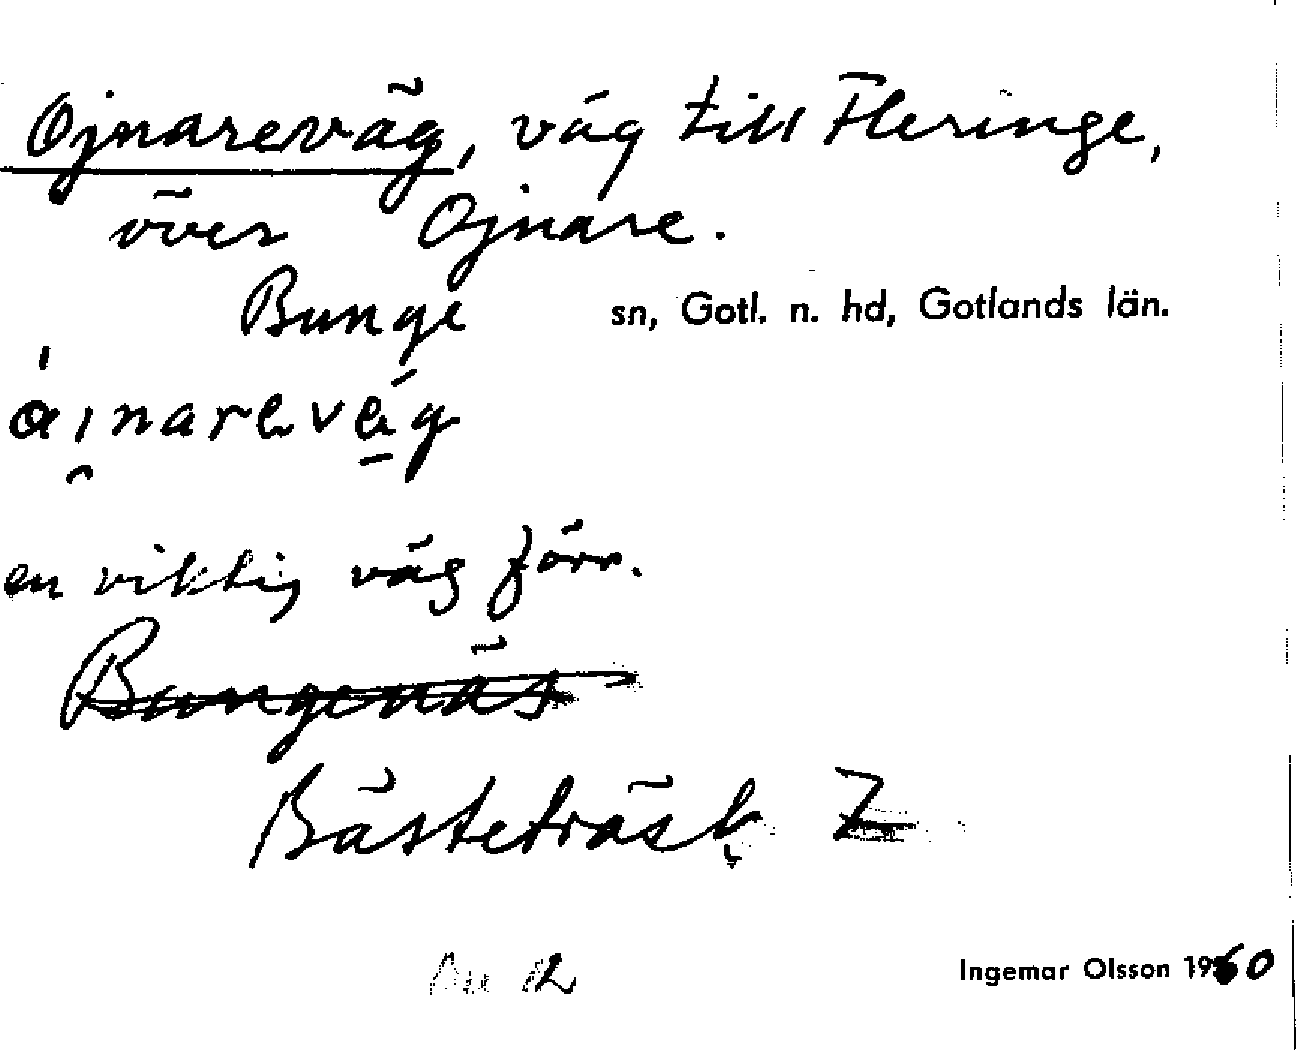 Ojnareväg, väg till Fleringe,
över Ojnare.
Bunge sn, Gotl. n. hd, Gotlands län.
en viktig väg förr.
Bungenäs
Bästeträsk Z
12
Ingemar Olsson 1960